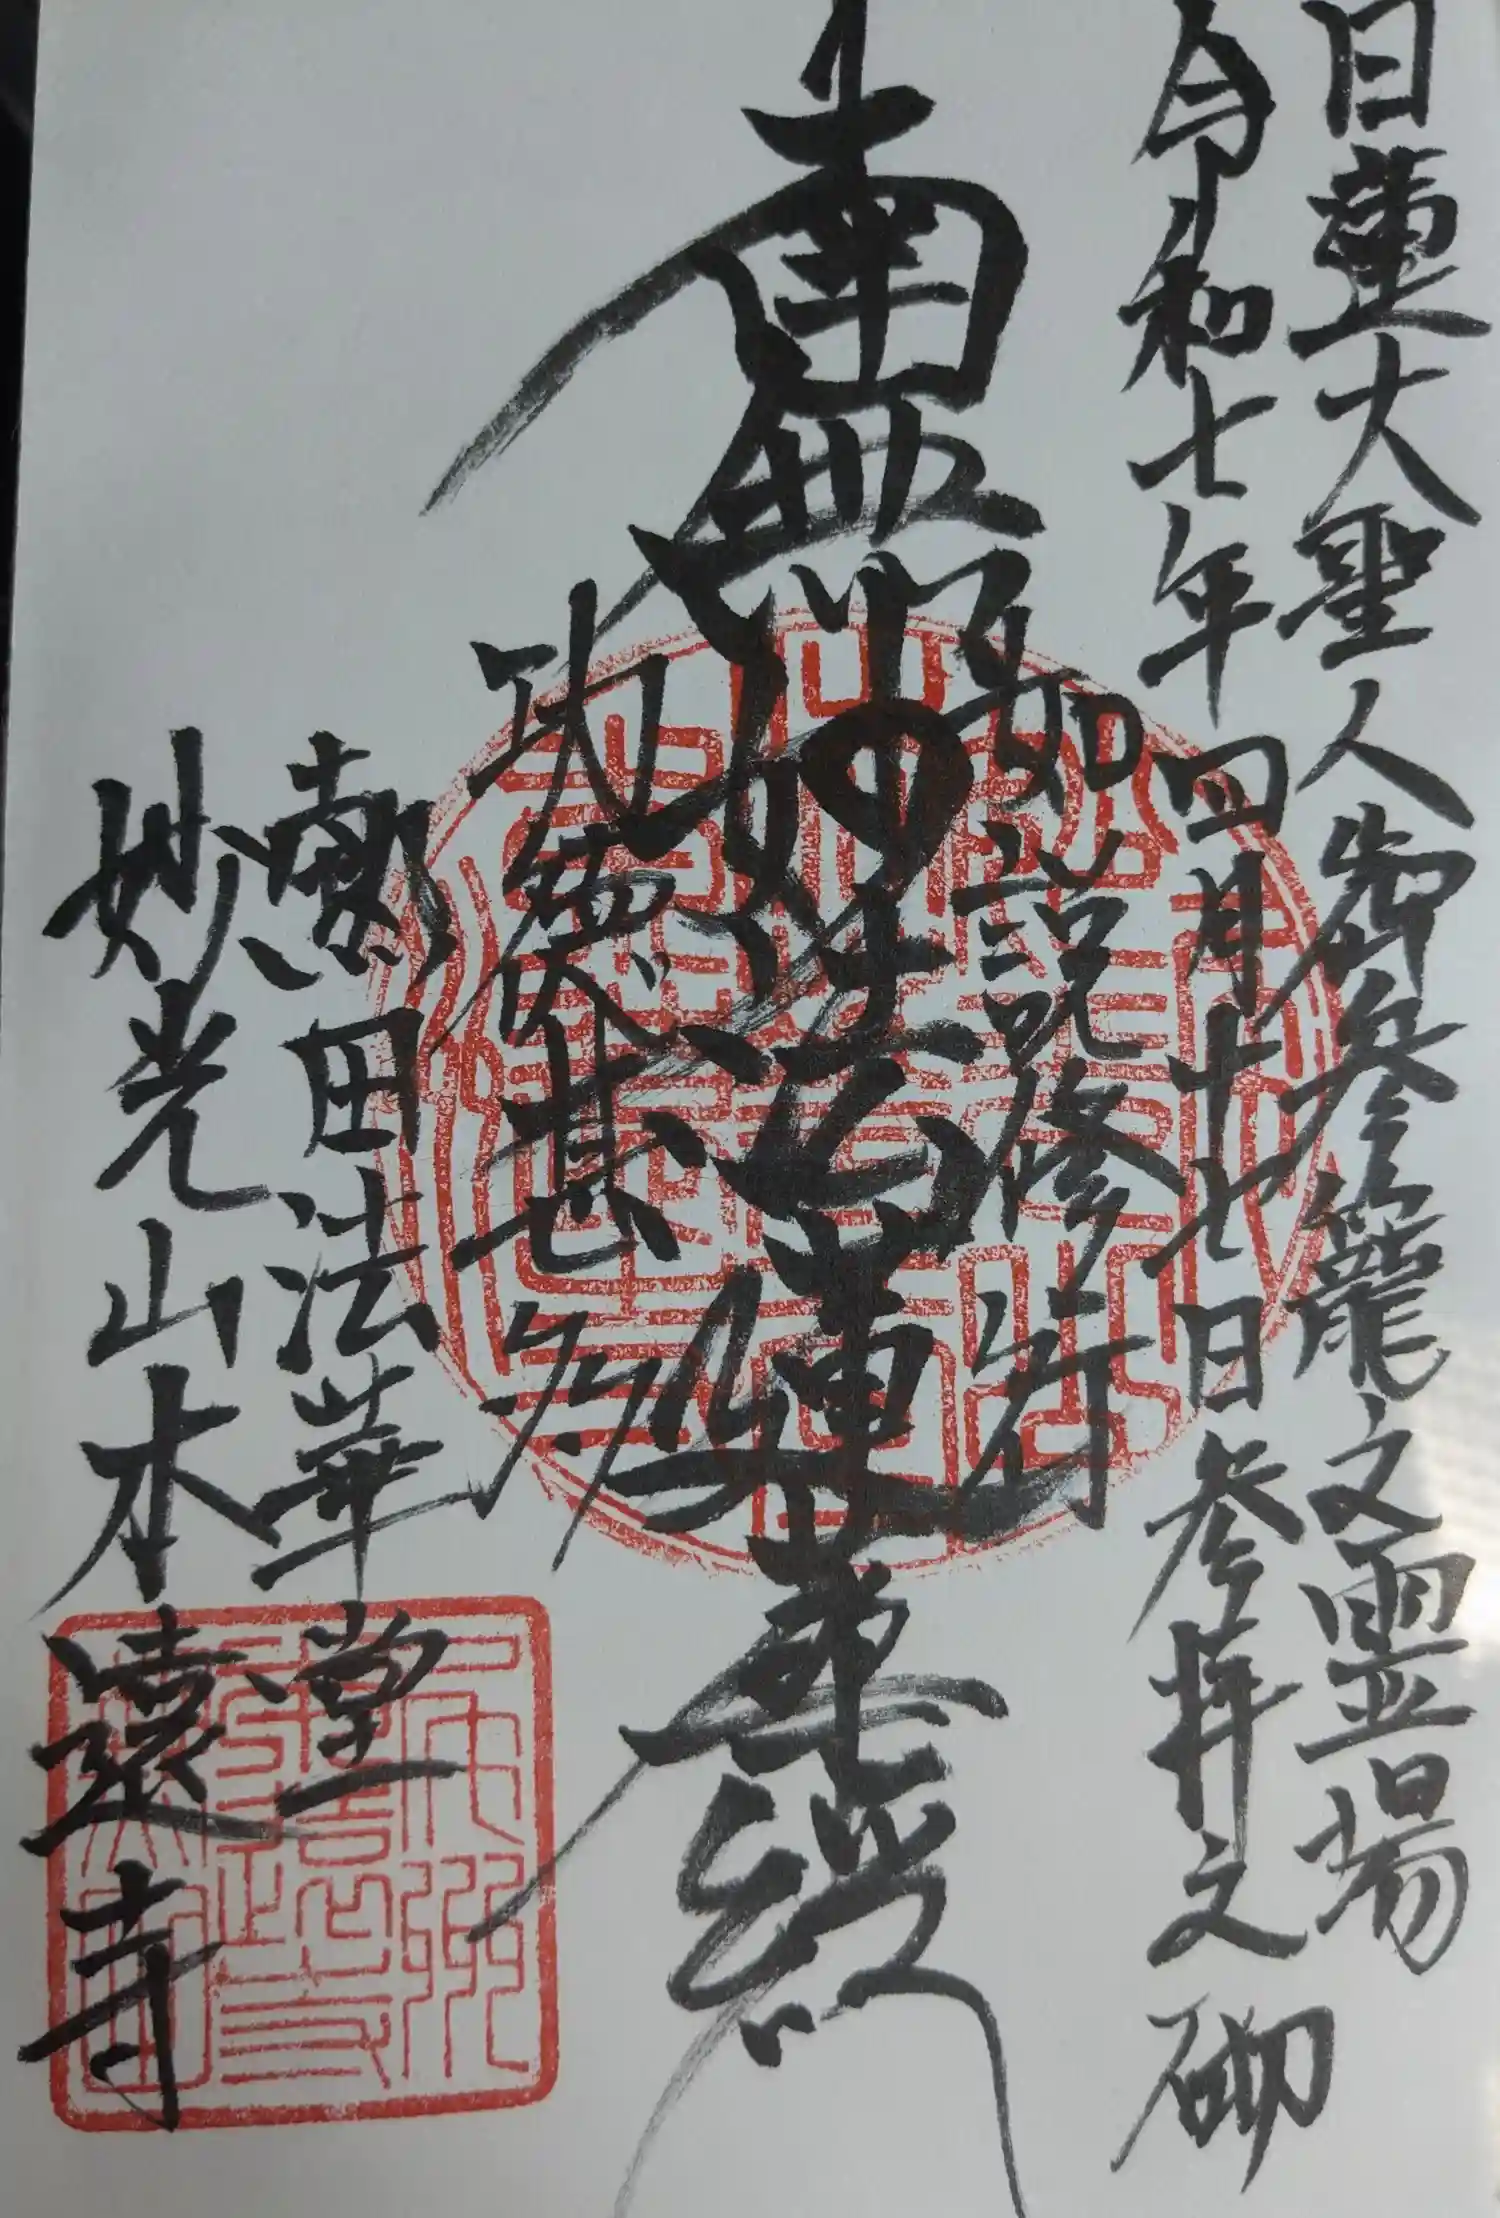 日蓮大聖人御参籠之霊場
令和七年四月十七日参拝之砌
如説修行
南無妙法蓮華経
功徳甚多
熱田法華堂
妙光山本遠寺